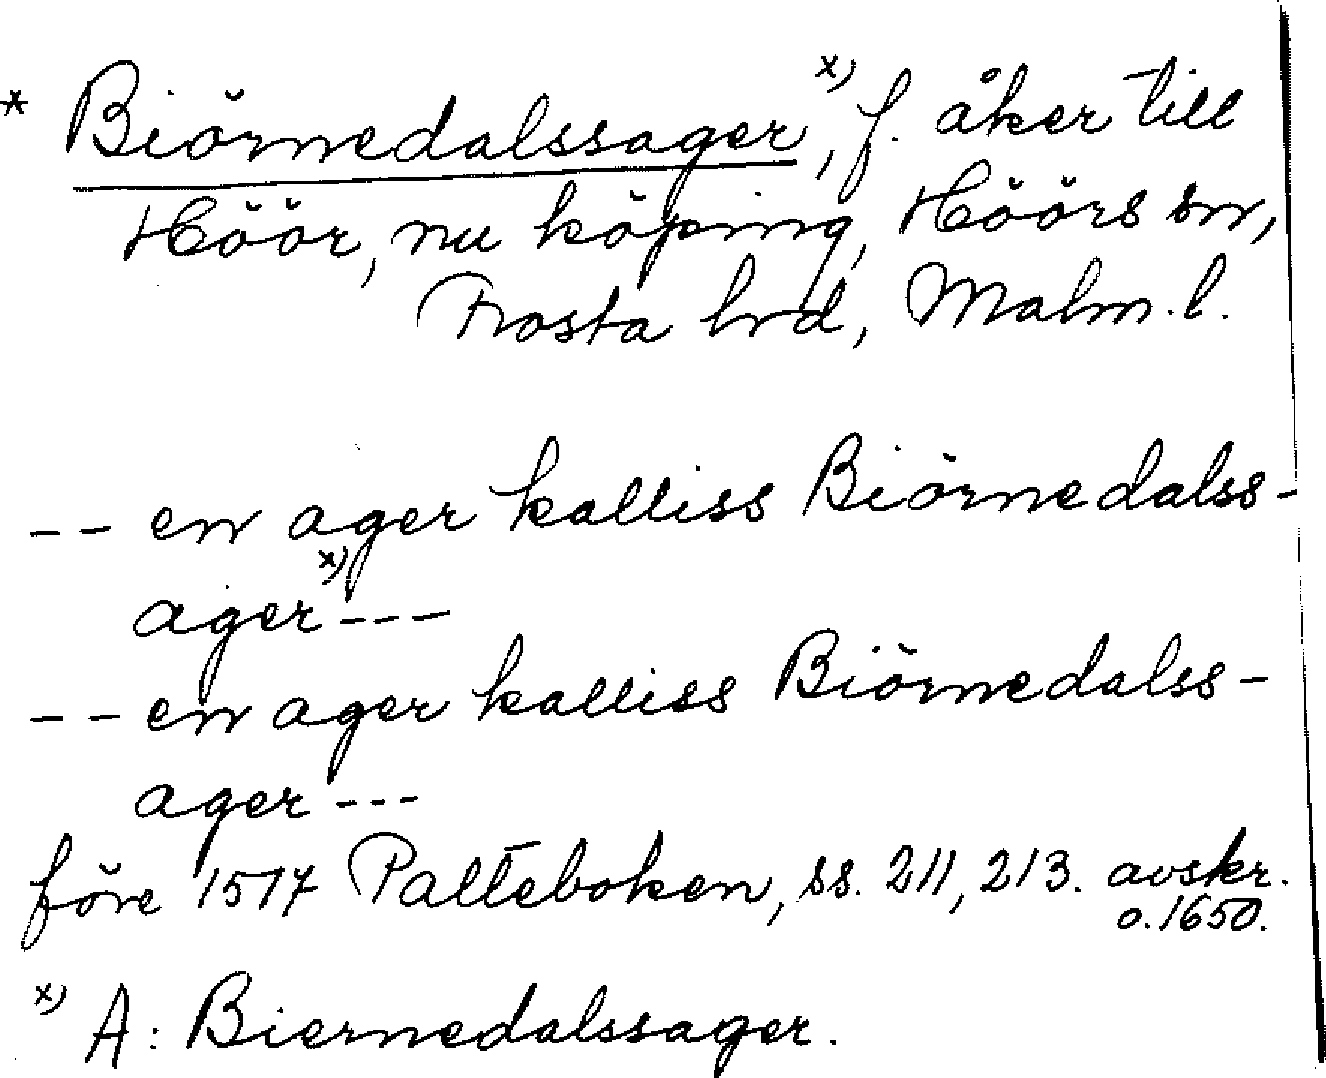 * Biörnedalssager, x) f. åker till
Höör, nu köping, Höörs sn,
Frosta hrd, Malm. l.
-- en ager kalliss Biörnedalss-
ager x) ---
-- en ager kalliss Biörnedalss-
ager ---
före 1517 Palteboken, ss. 211, 213. avskr.
o. 1650.
x) A: Biernedalssager.